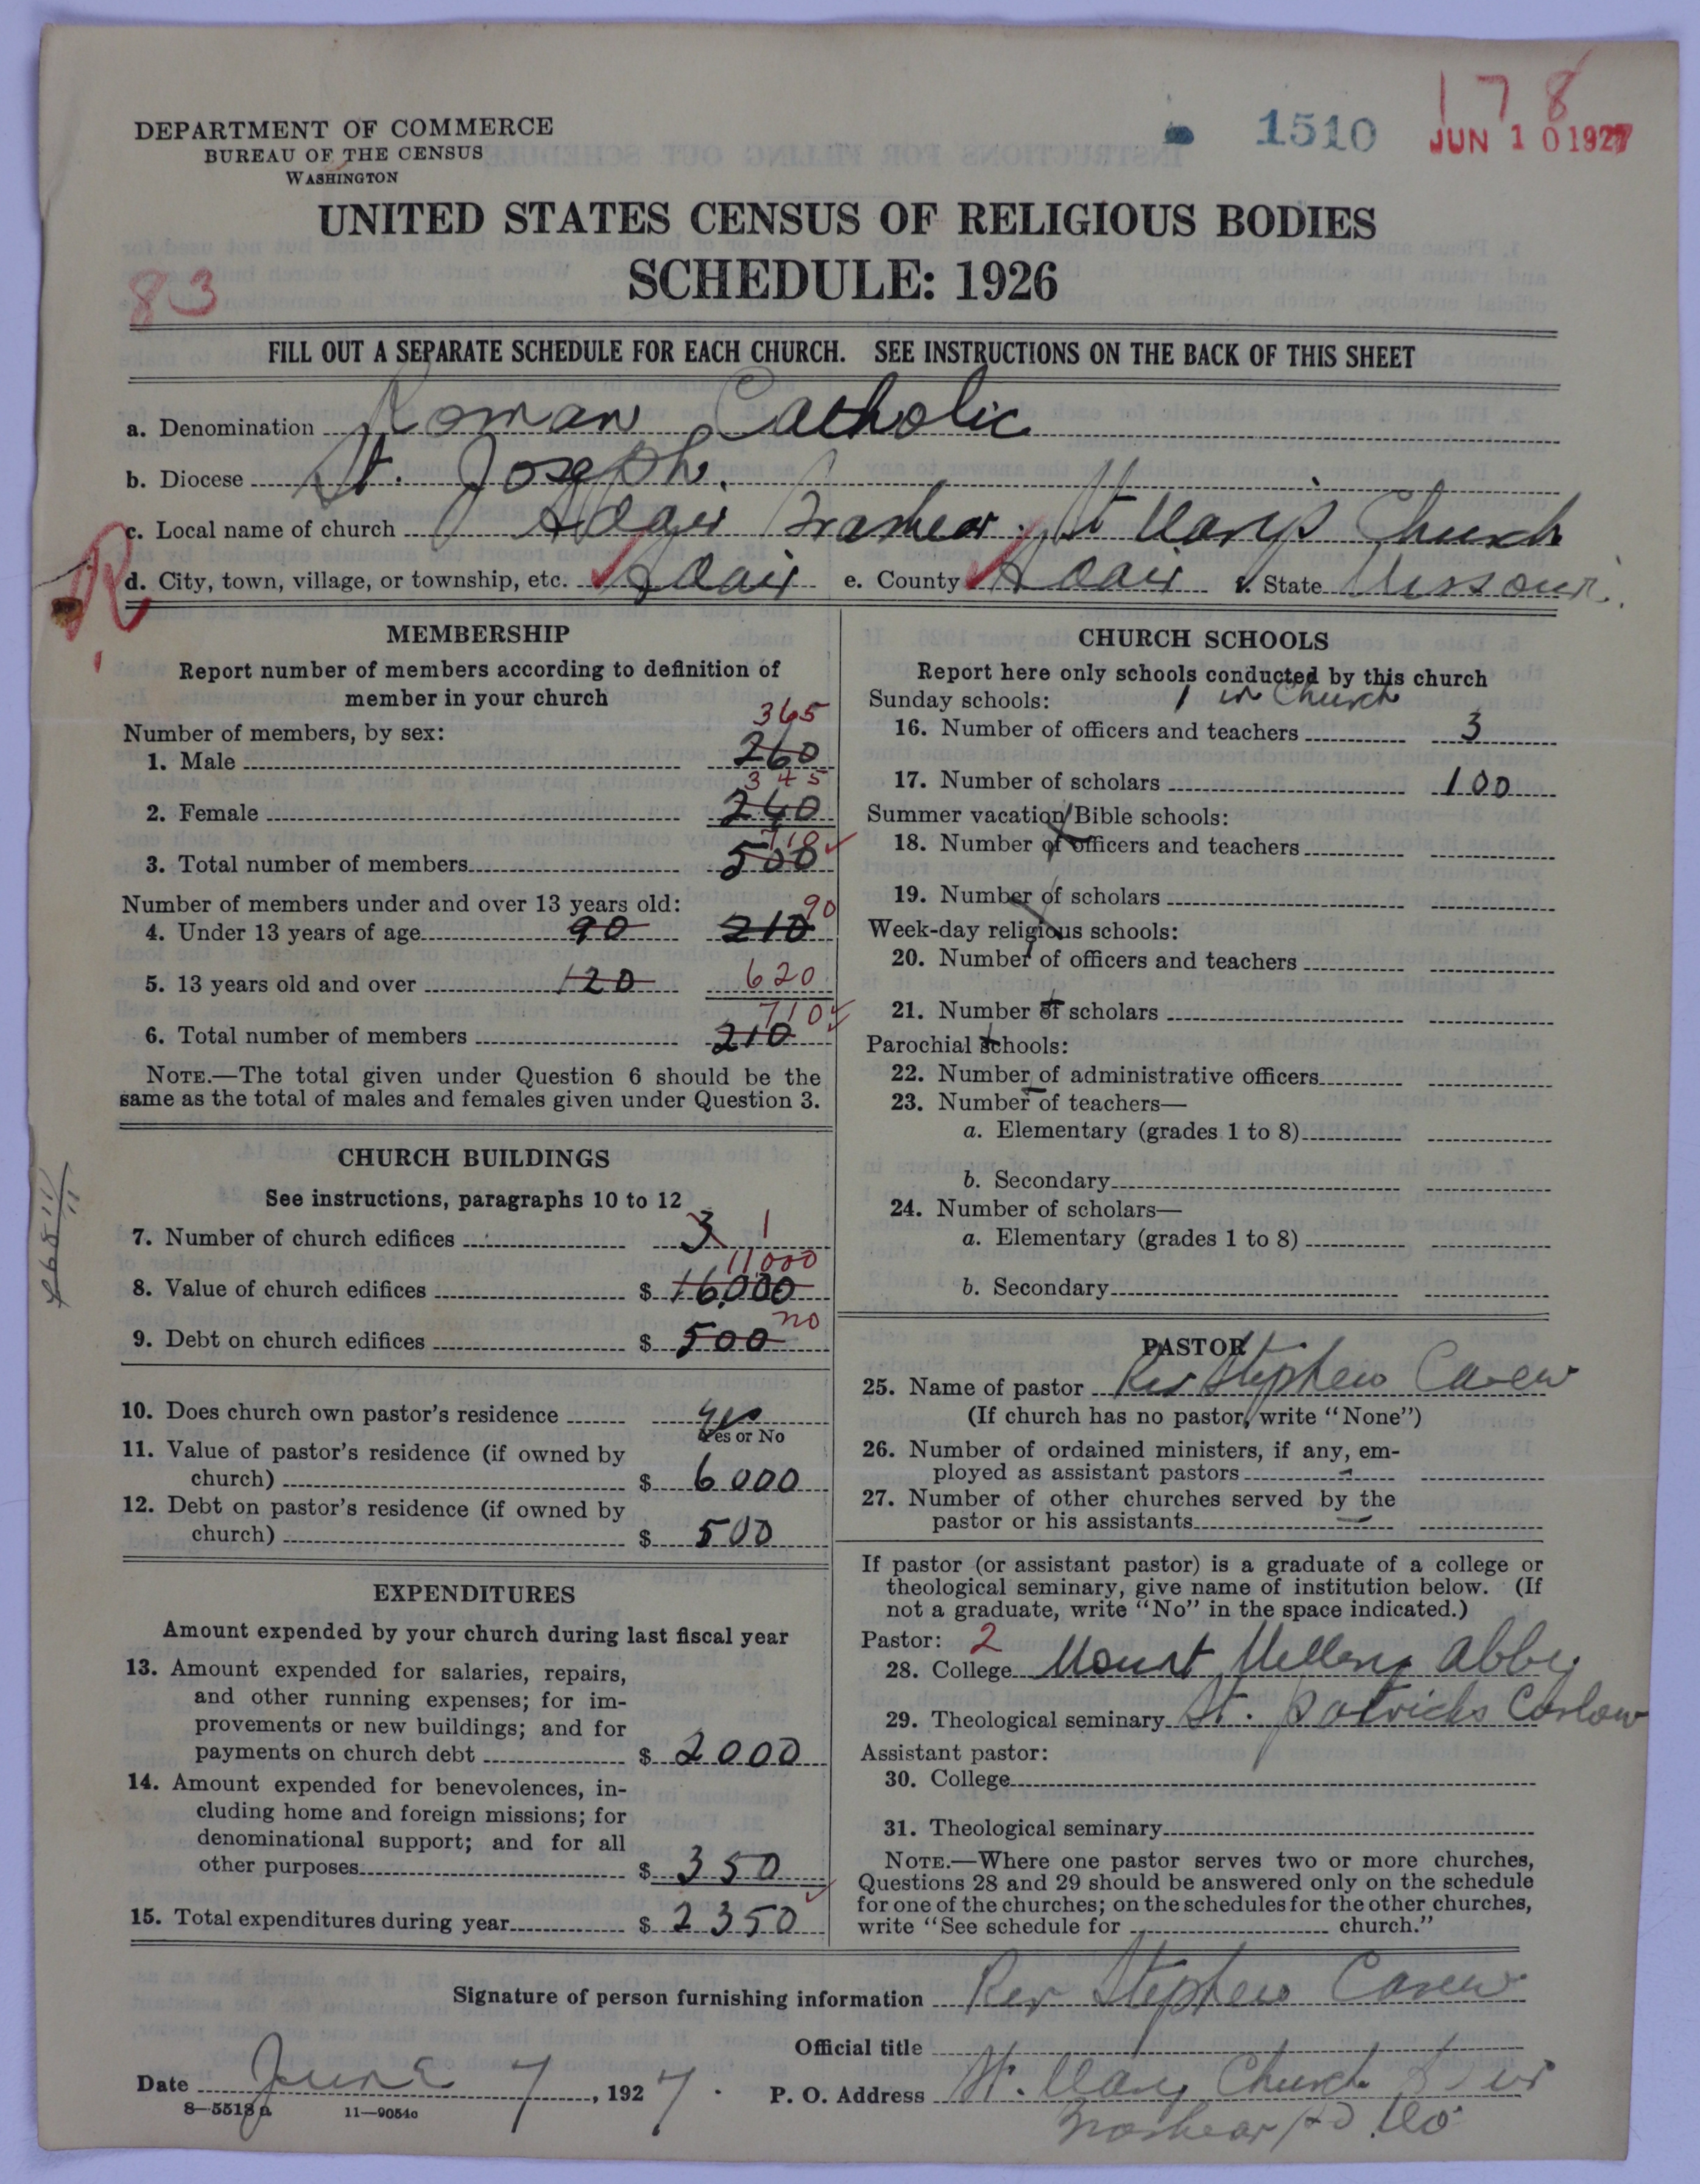 178
1510
JUN 10 1927
DEPARTMENT OF COMMERCE
BUREAU OF THE CENSUS
WASHINGTON
UNITED STATES CENSUS OF RELIGIOUS BODIES
SCHEDULE: 1926
83
FILL OUT A SEPARATE SCHEDULE FOR EACH CHURCH. SEE INSTRUCTIONS ON THE BACK OF THIS SHEET
a. Denomination Roman Catholic
b. Diocese St. Joseph.
c. Local name of church Adair Brashear. St Marys Church
R
d. City, town, village, or township, etc. Adair e. County Adair f. State Missouri.
MEMBERSHIP
Report number of members according to definition of
member in your church
Number of members, by sex:
365
1. Male 260
345
2. Female 240
710
3. Total number of members 500
Number of members under and over 13 years old:
90
4. Under 13 years of age 90 210
5. 13 years old and over 120 620
710
6. Total number of members 210
NOTE.—The total given under Question 6 should be the
same as the total of males and females given under Question 3.
CHURCH BUILDINGS
See instructions, paragraphs 10 to 12
7. Number of church edifices 3 1
11000
8. Value of church edifices $ 16,000
no
9. Debt on church edifices $ 500
10. Does church own pastor's residence yes
Yes or No
11. Value of pastor's residence (if owned by
church) $ 6000
12. Debt on pastor's residence (if owned by
church) $ 500
EXPENDITURES
Amount expended by your church during last fiscal year
13. Amount expended for salaries, repairs,
and other running expenses; for im-
provements or new buildings; and for
payments on church debt $ 2000
14. Amount expended for benevolences, in-
cluding home and foreign missions; for
denominational support; and for all
other purposes $ 350
15. Total expenditures during year $ 2350
CHURCH SCHOOLS
Report here only schools conducted by this church
Sunday schools: 1 in Church
16. Number of officers and teachers 3
17. Number of scholars 100
Summer vacation Bible schools:
18. Number of officers and teachers
19. Number of scholars
Week-day religious schools:
20. Number of officers and teachers
21. Number of scholars
Parochial schools:
22. Number of administrative officers
23. Number of teachers—
a. Elementary (grades 1 to 8)
b. Secondary
24. Number of scholars—
a. Elementary (grades 1 to 8)
b. Secondary
PASTOR
25. Name of pastor Rev Stephen Carew
(If church has no pastor, write "None")
26. Number of ordained ministers, if any, em-
ployed as assistant pastors -
27. Number of other churches served by the
pastor or his assistants —
If pastor (or assistant pastor) is a graduate of a college or
theological seminary, give name of institution below. (If
not a graduate, write "No" in the space indicated.)
Pastor: 2
28. College Mount Mellery Abby.
29. Theological seminary St. Patricks Carlow
Assistant pastor:
30. College
31. Theological seminary
NOTE.—Where one pastor serves two or more churches,
Questions 28 and 29 should be answered only on the schedule
for one of the churches; on the schedules for the other churches,
write "See schedule for church."
Signature of person furnishing information Rev Stephen Carew
Official title
Date June 7, 1927. P. O. Address St. Marys Church Adair
Brashear Mo.
8—5518a 11—9054c